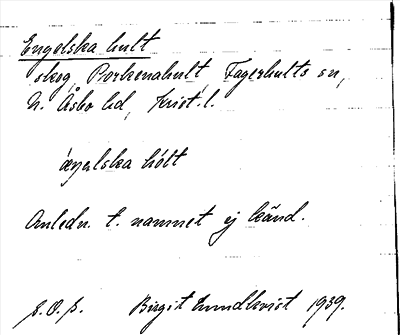 Engelska hult
skog, Porkenahult Fagerhults sn,
N. Åsbo hd, Krist. l.
áŋəlska hólt
Anledn. t. namnet ej känd.
f. O. f. Birgit Lundkvist 1939.